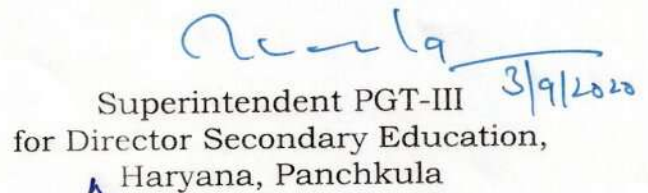 3/9/2020
Superintendent PGT-III
for Director Secondary Education,
Haryana, Panchkula